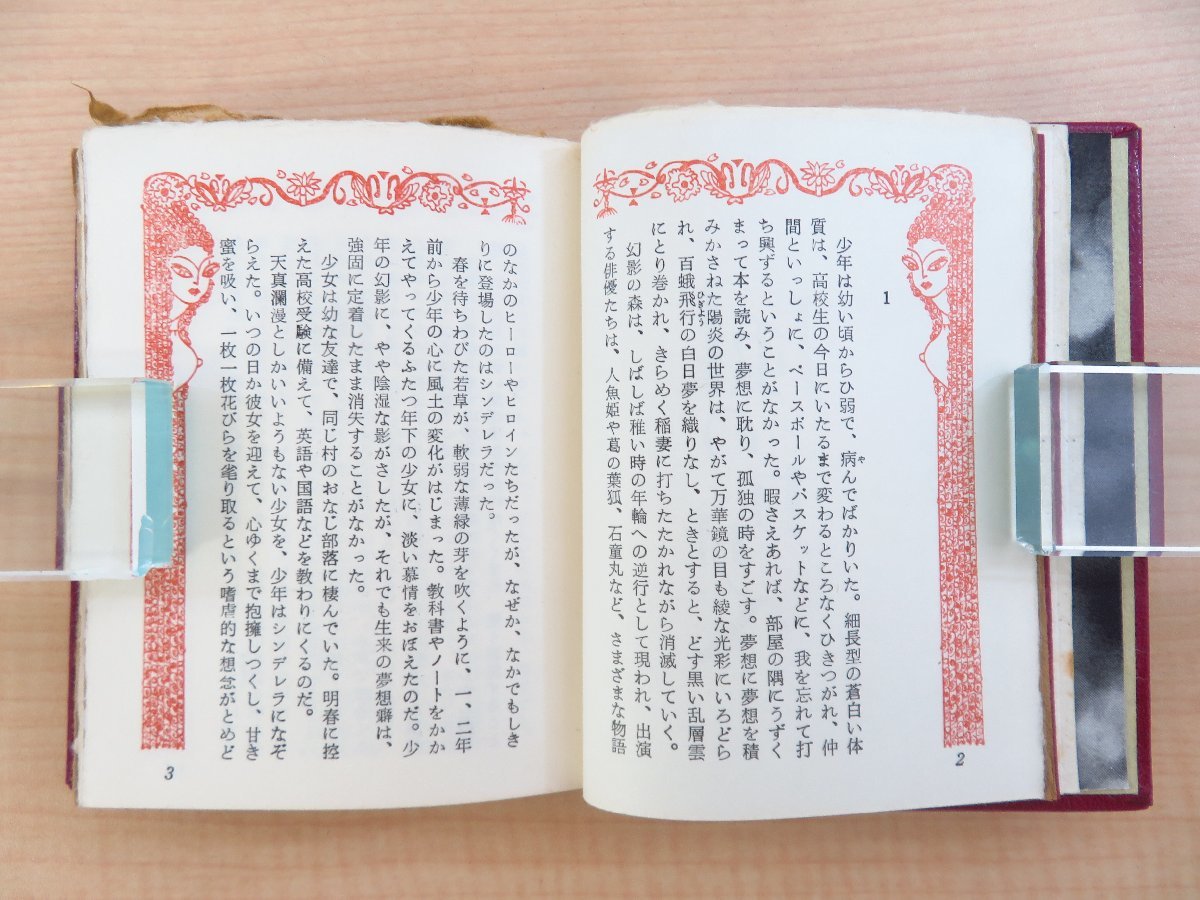 1
少年は幼い頃からひ弱で、病んでばかりいた。細長型の蒼白い体
や
質は、高校生の今日にいたるまで変わるところなくひきつがれ、仲
間といっしょに、ベースボールやバスケットなどに、我を忘れて打
ち興ずるということがなかった。暇さえあれば、部屋の隅にうずく
まって本を読み、夢想に耽り、孤独の時をすごす。夢想に夢想を積
みかさねた陽炎の世界は、やがて万華鏡の目も綾な光彩にいろどら
れ、百蛾飛行の白日夢を織りなし、ときとすると、どす黒い乱層雲
ひぎよう
にとり巻かれ、きらめく稲妻に打ちたたかれながら消滅していく。
幻影の森は、しばしば稚い時の年輪への逆行として現われ、出演
する俳優たちは、人魚姫や葛の葉狐、石童丸など、さまざまな物語
2
のなかのヒーローやヒロインたちだったが、なぜか、なかでもしき
りに登場したのはシンデレラだった。
春を待ちわびた若草が、軟弱な薄緑の芽を吹くように、一、二年
前から少年の心に風土の変化がはじまった。教科書やノートをかか
えてやってくるふたつ年下の少女に、淡い慕情をおぼえたのだ。少
年の幻影に、やや陰湿な影がさしたが、それでも生来の夢想癖は、
強固に定着したまま消失することがなかった。
少女は幼な友達で、同じ村のおなじ部落に棲んでいた。明春に控
えた高校受験に備えて、英語や国語などを教わりにくるのだ。
天真瀾漫としかいいようもない少女を、少年はシンデレラになぞ
らえた。いつの日か彼女を迎えて、心ゆくまで抱擁しつくし、甘き
蜜を吸い、一枚一枚花びらを毟り取るという嗜虐的な想念がとめど
3